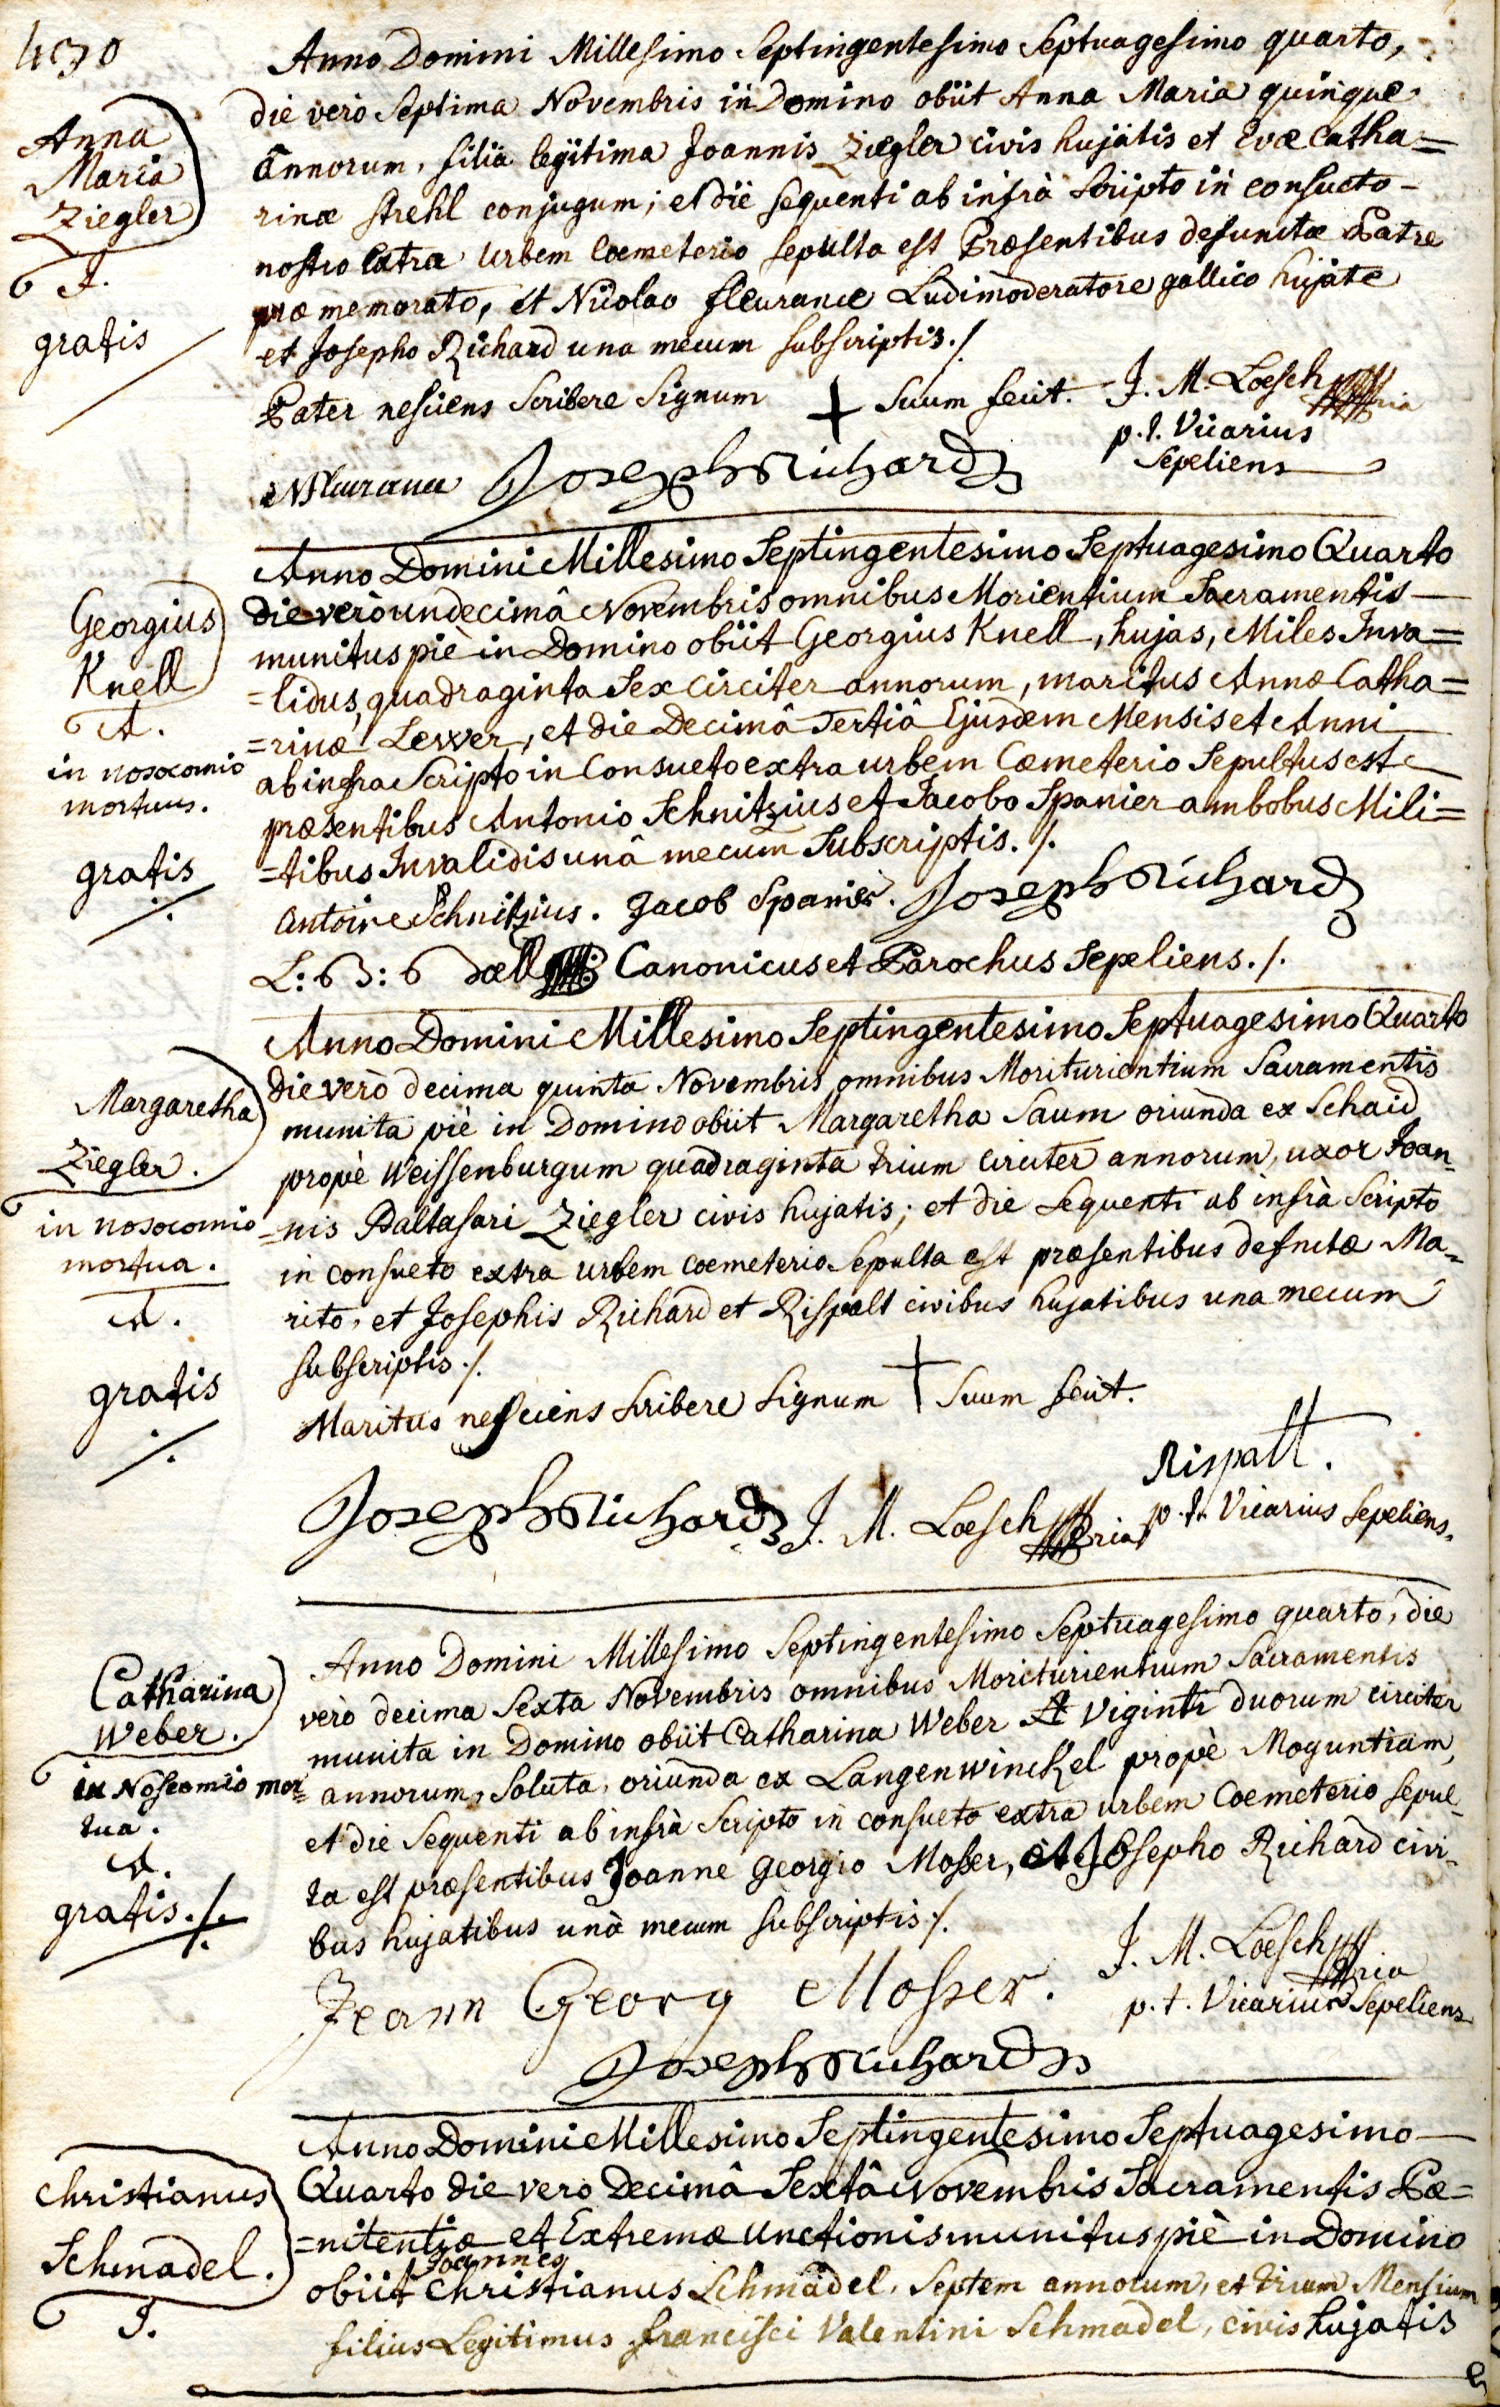 430
Anna
Maria
Ziegler
J.
gratis
Anno Domini Millesimo Septingentesimo Septuagesimo quarto,
die verò Septima Novembris in Domino obiit Anna Maria quinque
annorum, filia legitima Joannis Ziegler civis hujatis et Evæ Catha=
rinæ Strehl conjugum; et die sequenti ab infrà scripto in consueto
nostro extra urbem Coemeterio sepulta est Præsentibus defunctæ Patre
præmemorato, et Nicolao fleurance Ludimoderatore gallico hujate
et Josepho Richard una mecum subscriptis./.
Pater nesciens scribere signum + suum fecit. J. M. Loesch
p. t. Vicarius
Sepeliens
Joseph Richard
Georgius
Knell
A.
in nosocomio
mortuus.
gratis
./.
Anno Domini Millesimo Septingentesimo Septuagesimo Quarto
die verò undecimâ Novembris omnibus Morientium Sacramentis
munitus piè in Domino obiit Georgius Knell, hujas, Miles Inva=
=lidus, quadraginta sex circiter annorum, maritus Annæ Catha=
=rinæ Lexer, et die Decimâ Tertiâ Ejusdem Mensis et Anni
ab infra Scripto in Consueto extra urbem Cæmeterio Sepultus est
præsentibus Antonio Schnitzius et Jacobo Spanier ambobus Mili=
=tibus Invalidis unâ mecum Subscriptis./.
antoine Schnitzius. Jacob Spanier. Joseph Richard
Canonicus et Parochus Sepeliens./.
Margaretha
Ziegler.
in nosocomio
mortua.
A.
gratis
./.
Anno Domini Millesimo Septingentesimo Septuagesimo Quarto
die verò decima quinta Novembris omnibus Moriturientium Sacramentis
munita piè in Domino obiit Margaretha Saum oriunda ex Schaid
propè Weissenburgum quadraginta trium circiter annorum, uxor Joan=
=nis Baltasari Ziegler civis hujatis; et die sequenti ab infrà scripto
in consueto extra urbem coemeterio sepulta est præsentibus defnctæ Ma=
rito, et Josephis Richard et Rispalt civibus hujatibus una mecum
subscriptis./.
Maritus nesciens scribere signum + suum fecit.
Rispalt.
Joseph Richard J. M. Loesch p. t. Vicarius Sepeliens.
Catharina
Weber.
in Noscomio mor=
tua.
A.
gratis./.
Anno Domini Millesimo Septingentesimo Septuagesimo quarto, die
verò decima Sexta Novembris omnibus Moriturientium Sacramentis
munita in Domino obiit Catharina Weber Viginti duorum circiter
annorum, Soluta, oriunda ex Langenwinckel propè Moguntiam,
et die Sequenti ab infrà Scripto in consueto extra urbem Coemeterio sepul=
ta est præsentibus Joanne Georgio Mosser, et Josepho Richard civi=
bus hujatibus unà mecum subscriptis./.
J. M. Loesch
Jeann Georg Mosser. p. t. Vicarius Sepeliens
Joseph Richard
Christianus
Schmadel.
J.
Anno Domini Millesimo Septingentesimo Septuagesimo
Quarto die vero Decimâ Sextâ Novembris Sacramentis Pæ=
=nitentiæ et Extremæ Unctionis munitus piè in Domino
Joannes
obiit Christianus Schmadel, Septem annorum, et trium Mensium
filius Legitimus francisci Valentini Schmadel, civis hujatis